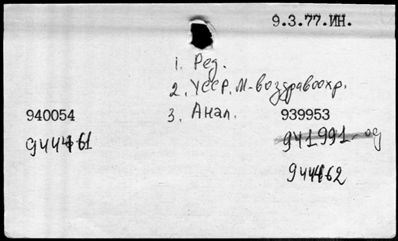 9.3.77.ИН.
1. Ред.
2. УССР. М-во здравоохр.
3. Анал.
940054
939953
944461
941991-од
944462